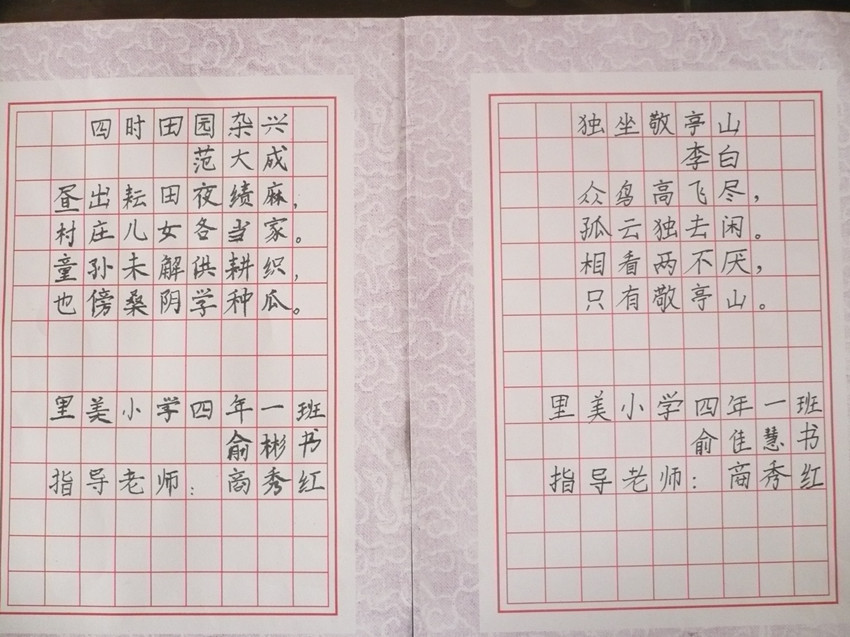 四时田园杂兴
范大成
昼出耘田夜绩麻，
村庄儿女各当家。
童孙未解供耕织，
也傍桑阴学种瓜。
里美小学四年一班
俞彬书
指导老师：商秀红
独坐敬亭山
李白
众鸟高飞尽，
孤云独去闲。
相看两不厌，
只有敬亭山。
里美小学四年一班
俞佳慧书
指导老师：商秀红